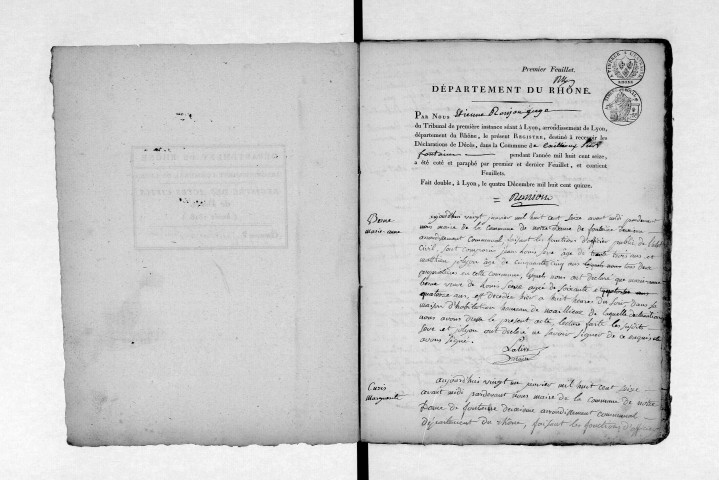 Premier Feuillet.
DÉPARTEMENT DU RHÔNE.
PAR NOUS Etienne Ranjon, juge
du Tribunal de première instance séant à Lyon, arrondissement de Lyon,
département du Rhône, le présent REGISTRE, destiné à recevoir les
Déclarations de Décès, dans la Commune de
fontaine pendant l'année mil huit cent seize,
a été coté et paraphé par premier et dernier Feuillet, et contient
Feuillets.
Fait double, à Lyon, le quatre Décembre mil huit cent quinze.
Ranjon
Borne
marie anne
aujourdhui vingt janvier mil huit cent seize avant midi pardevant
nous maire de la commune de notre Dame de fontaine
arrondissement Communal, faisant les fonctions d'officier public de l'état
Civil, sont comparus jean louis seve age de trente trois ans et
mathieu pijon age de cinquante cinq ans tous deux
en cette commune, lesquels nous ont déclaré que marie anne
borne veuve de Louis seve agée de soixante
quatorze ans, est décédée hier a huit heures du soir, dans sa
maison d'habitation hameau de noailleux de laquelle déclaration
nous avons dressé le present acte, lecture faite les susdits
seve et pijon ont déclaré ne savoir signer de ce enquis et
avons signé.
Curis
Marguerite
aujourdhui vingt un janvier mil huit cent seize
avant midi pardevant nous maire de la commune de notre
Dame de fontaine arrondissement communal
département du rhône, faisant les fonctions d'officier